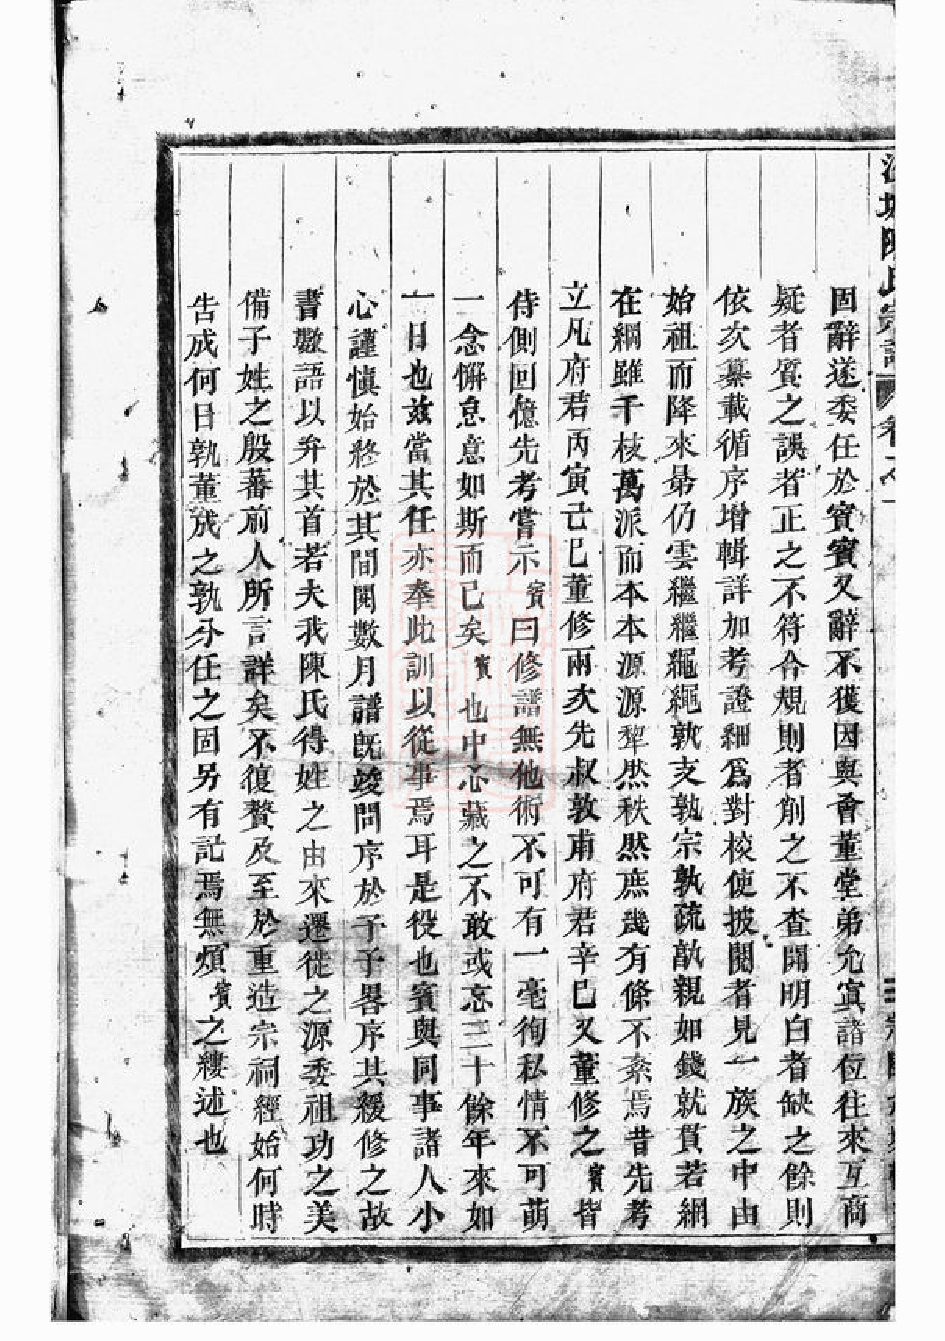 陳氏宗譜 卷之一
固辭送委任於賓賓又辭不獲因與會董堂弟允寅諸位往來互商
疑者質之誤者正之不符合規則者削之不查開明白者缺之餘則
依次纂載循序增輯詳加考證細爲對校使披閱者見一族之中由
始祖而降來昴仍雲繼繼繩繩孰支孰宗孰疏孰親如錢就貫若網
在綱雖千枝萬派而本本源源犂然秩然庶幾有條不紊焉昔先考
立凡府君丙寅己巳董修兩次先叔敦甫府君辛巳又董修之賓皆
侍側回憶先考嘗示賓曰修譜無他術不可有一毫徇私情不可萌
一念懈怠意如斯而已矣賓也中心藏之不敢或忘三十餘年來如
一日也兹當其任亦奉此訓以從事焉耳是役也賓與同事諸人小
心謹慎始終於其間閱數月譜旣竣問序於予予畧序其緩修之故
書數語以弁其首若夫我陳氏得姓之由來遷徙之源委祖功之美
備子姓之殷蕃前人所言詳矣不復贅及至於重造宗祠經始何時
告成何日孰董成之孰分任之固另有記焉無煩賓之縷述也